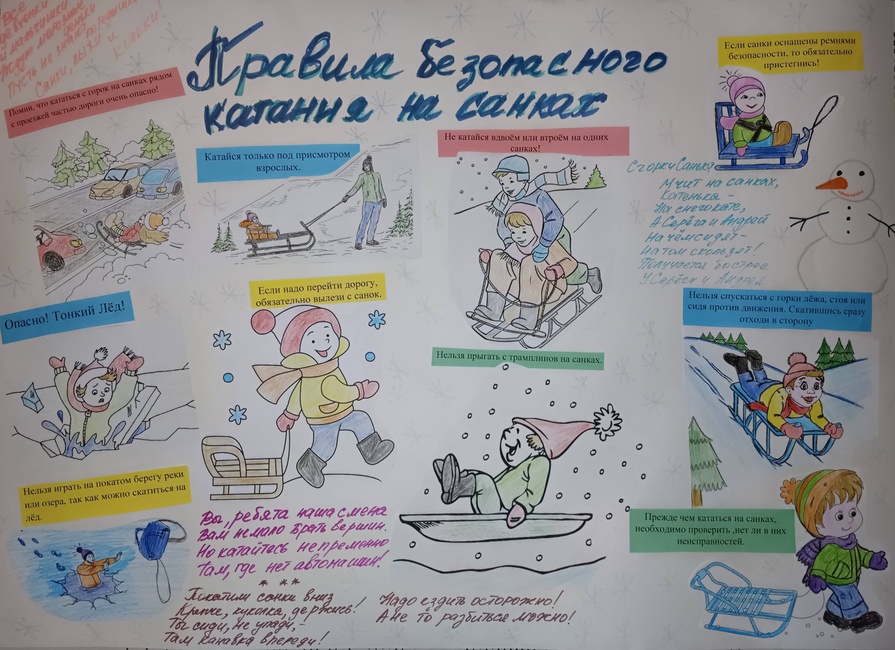 Правила безопасного
катания на санках
Все
Пусть не
Санки, лыжи и коньки.
Помни, что кататься с горок на санках рядом
с проезжей частью дороги очень опасно!
Катайся только под присмотром
взрослых.
Не катайся вдвоём или втроём на одних
санках!
Если санки оснащены ремнями
безопасности, то обязательно
пристегнись!
С горки Санька
Мчит на санках,
Катенька –
На снегокате,
А Серёга и Андрей
На чём сидят –
на том скользят!
Получается быстрее
У Серёги и Андрея
Опасно! Тонкий Лёд!
Если надо перейти дорогу,
обязательно вылези с санок.
Нельзя прыгать с трамплинов на санках.
Нельзя спускаться с горки лёжа, стоя или
сидя против движения. Скатившись сразу
отходи в сторону
Нельзя играть на покатом берегу реки
или озера, так как можно скатиться на
лёд.
Прежде чем кататься на санках,
необходимо проверить ,нет ли в них
неисправностей.
Вы, ребята наша смена
Вам немало брать вершин.
Но катайтесь непременно
Там, где нет автомашин!
* * *
Покатили санки вниз
Крепче, куколка, держись!
Ты сиди, не упади, -
Там канавка впереди!
Надо ездить осторожно!
А не то разбиться можно!